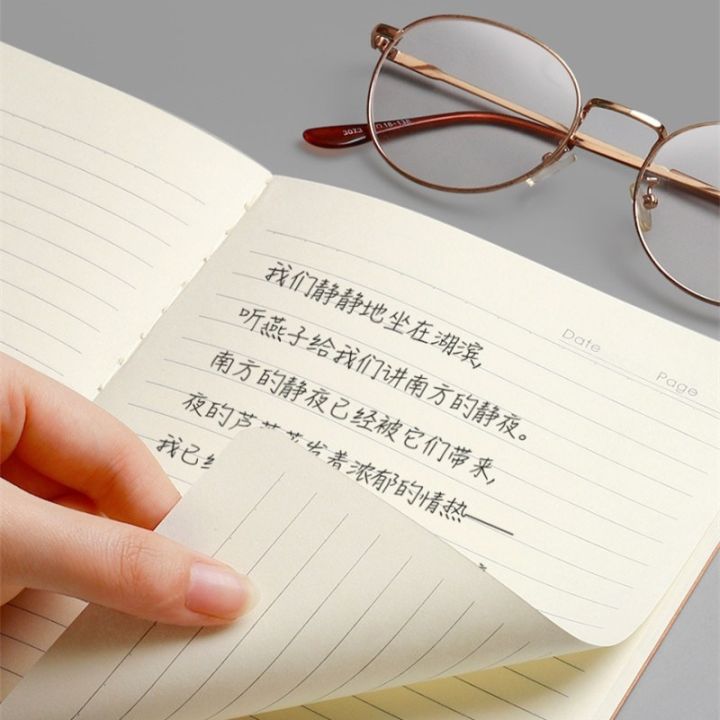 Date
Page
我们静静地坐在湖滨,
听燕子给我们讲南方的静夜。
南方的静夜已经被它们带来,
夜的芦苇蒸发着浓郁的情热——
我已